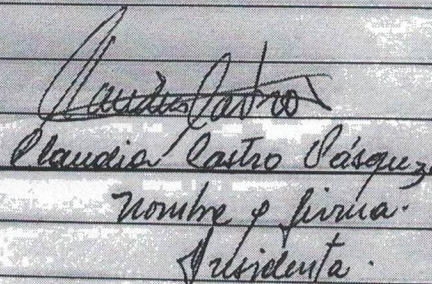 Claudia Castro
Claudia Castro Vásquez
nombre y firma.
Presidenta.